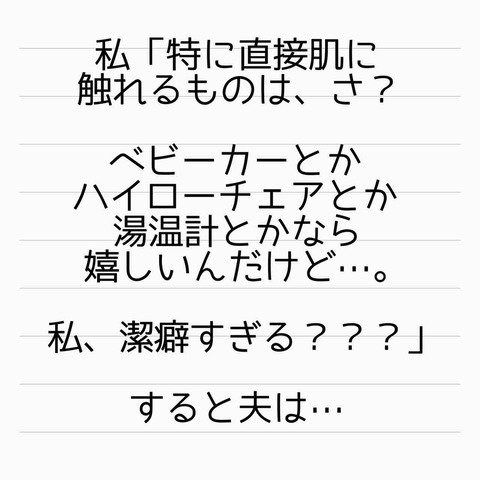 私「特に直接肌に
触れるものは、さ？
ベビーカーとか
ハイローチェアとか
湯温計とかなら
嬉しいんだけど…。
私、潔癖すぎる？？？」
すると夫は…